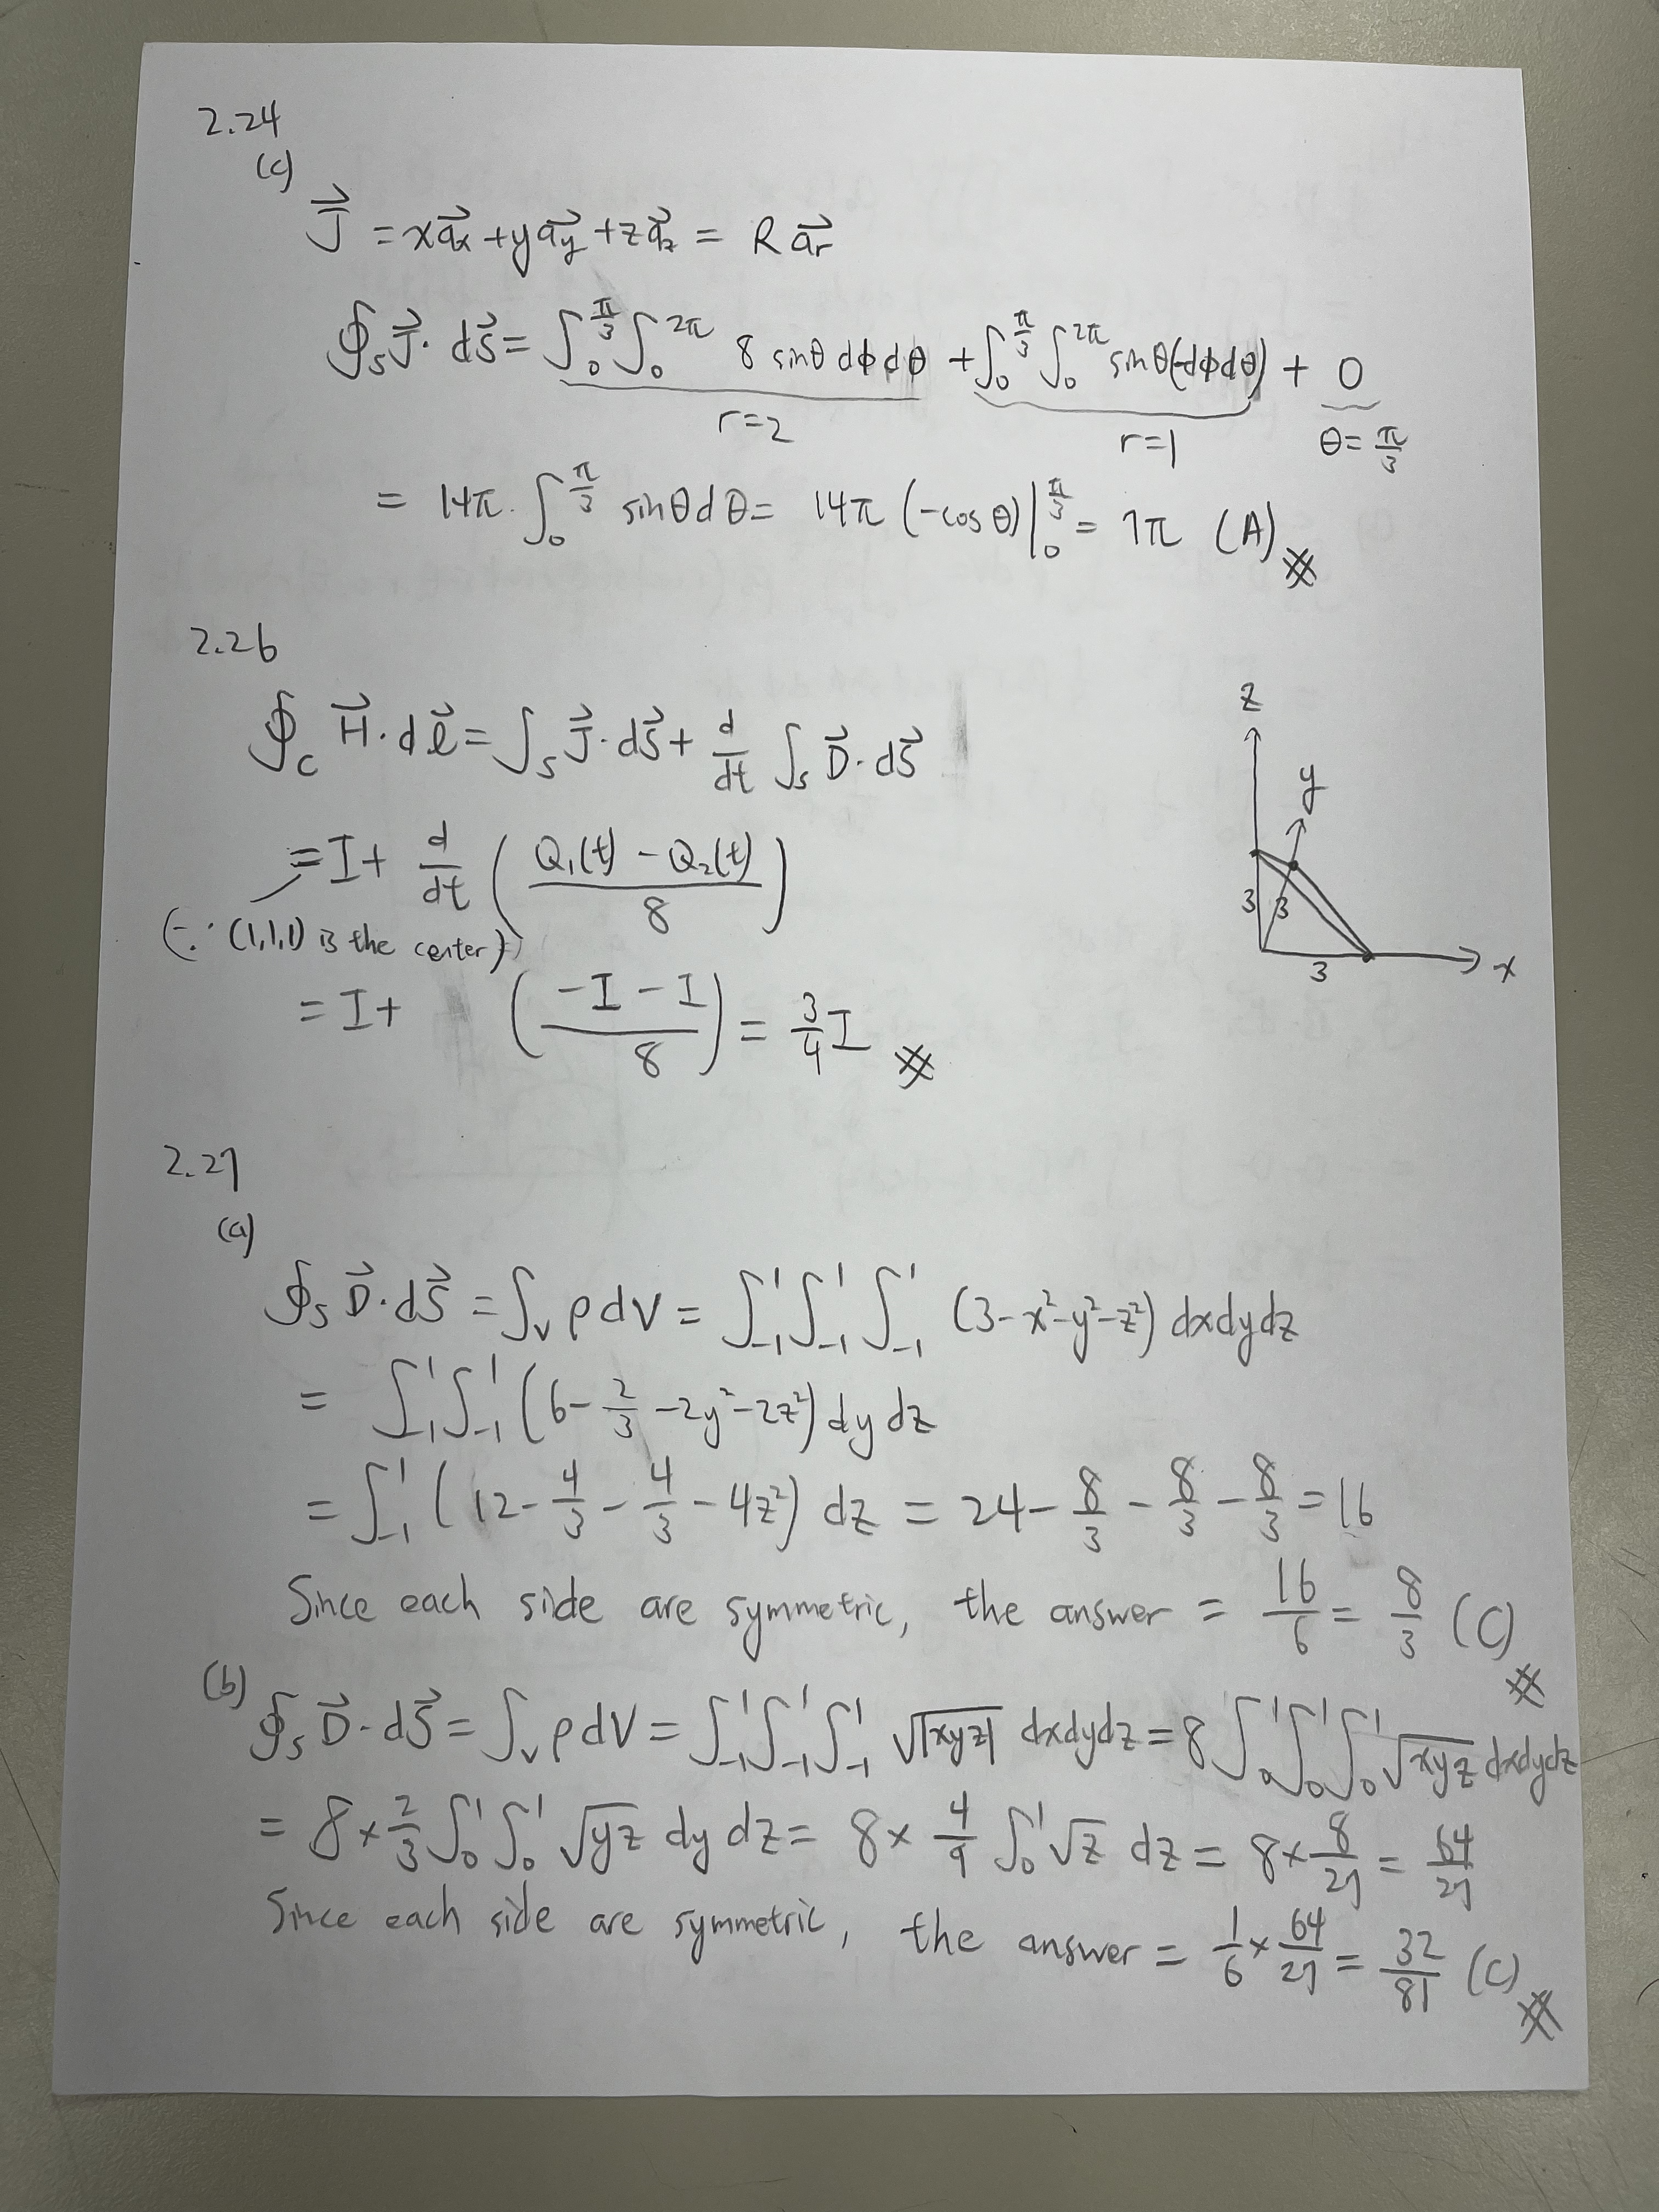 2.24
(c)
J⃗ = xa⃗x + ya⃗y + za⃗z = R a⃗r
∮s J⃗ · dS⃗ = ∫₀^(π/3) ∫₀^(2π) 8 sinθ dϕ dθ + ∫₀^(π/3) ∫₀^(2π) sinθ(-dϕdθ) + 0
r=2 r=1 θ = π/3
= 14π · ∫₀^(π/3) sinθ dθ = 14π (-cosθ)|₀^(π/3) = 7π (A)
2.26
∮c H⃗ · dℓ⃗ = ∫s J⃗ · dS⃗ + d/dt ∫s D⃗ · dS⃗
= I + d/dt ( (Q₁(t) - Q₂(t)) / 8 )
(∵ (1,1,1) is the center)
= I + ( (-I - I) / 8 ) = 3/4 I
z
y
3 3
3
x
2.27
(a)
∮s D⃗ · dS⃗ = ∫v ρ dV = ∫₋₁¹ ∫₋₁¹ ∫₋₁¹ (3 - x² - y² - z²) dxdydz
= ∫₋₁¹ ∫₋₁¹ (6 - 2/3 - 2y² - 2z²) dy dz
= ∫₋₁¹ (12 - 4/3 - 4/3 - 4z²) dz = 24 - 8/3 - 8/3 - 8/3 = 16
Since each side are symmetric, the answer = 16/6 = 8/3 (C)
(b) ∮s D⃗ · dS⃗ = ∫v ρ dV = ∫₋₁¹ ∫₋₁¹ ∫₋₁¹ √|xyz| dxdydz = 8 ∫₀¹ ∫₀¹ ∫₀¹ √xyz dxdydz
= 8 × 2/3 ∫₀¹ ∫₀¹ √yz dy dz = 8 × 4/9 ∫₀¹ √z dz = 8 × 8/27 = 64/27
Since each side are symmetric, the answer = 1/6 × 64/27 = 32/81 (C)